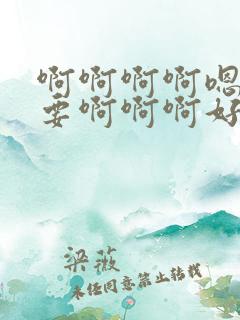 啊啊啊啊嗯
要啊啊啊好
梁薇
未经同意禁止转载